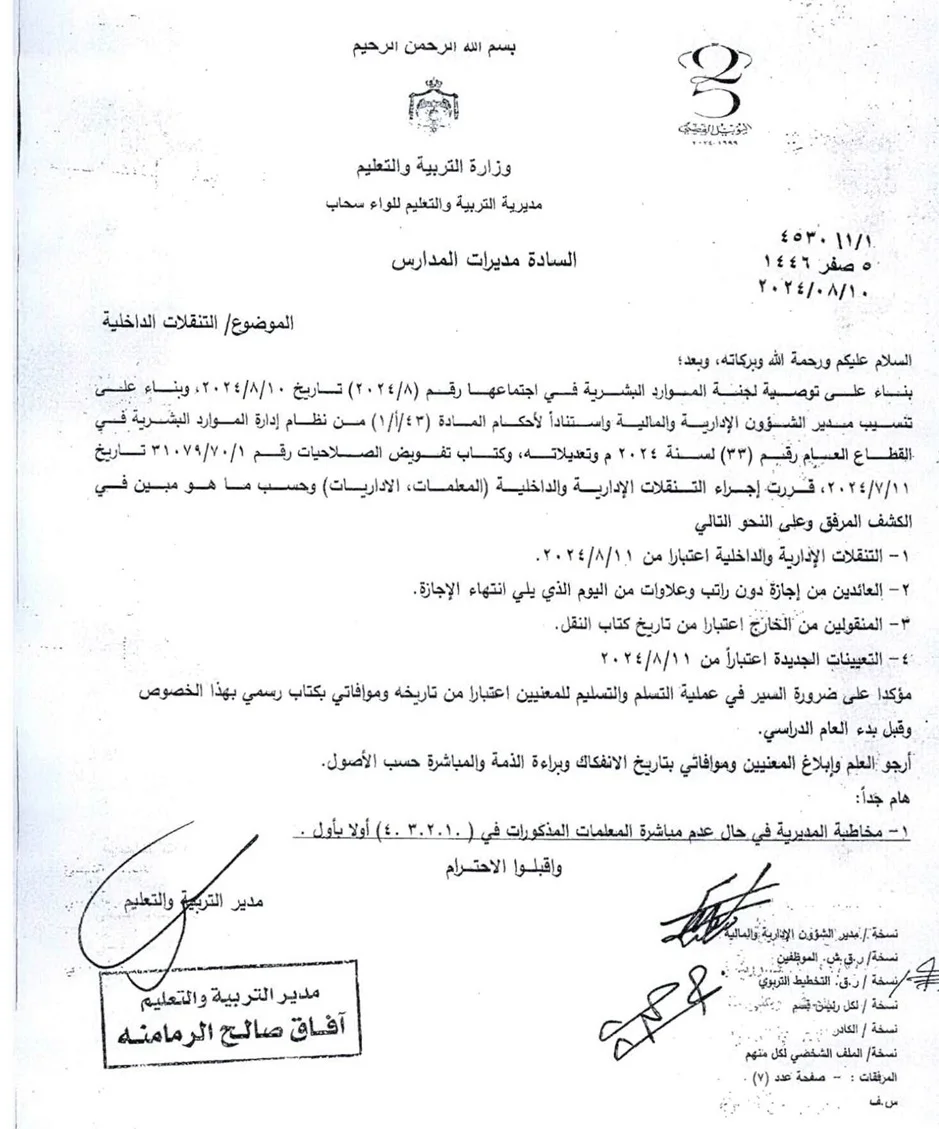 بسم الله الرحمن الرحيم
اليوبيل الفضي
١٩٩٩-٢٠٢٤
وزارة التربية والتعليم
مديرية التربية والتعليم للواء سحاب
٤٥٣٠/١١/١
٥ صفر ١٤٤٦
٢٠٢٤/٠٨/١٠
السادة مديرات المدارس
الموضوع/ التنقلات الداخلية
السلام عليكم ورحمة الله وبركاته، وبعد؛
بناء على توصية لجنة الموارد البشرية في اجتماعها رقم (٢٠٢٤/٨) تاريخ ٢٠٢٤/٨/١٠، وبناء على
تنسيب مدير الشؤون الإدارية والمالية واستناداً لأحكام المادة (٤٣/أ/١) من نظام إدارة الموارد البشرية في
القطاع العام رقم (٣٣) لسنة ٢٠٢٤ م وتعديلاته، وكتاب تفويض الصلاحيات رقم ٣١٠٧٩/٧٠/١ تاريخ
٢٠٢٤/٧/١١، قررت إجراء التنقلات الإدارية والداخلية (المعلمات، الاداريات) وحسب ما هو مبين في
الكشف المرفق وعلى النحو التالي
١- التنقلات الإدارية والداخلية اعتبارا من ٢٠٢٤/٨/١١.
٢- العائدين من إجازة دون راتب وعلاوات من اليوم الذي يلي انتهاء الإجازة.
٣- المنقولين من الخارج اعتبارا من تاريخ كتاب النقل.
٤- التعيينات الجديدة اعتباراً من ٢٠٢٤/٨/١١
مؤكدا على ضرورة السير في عملية التسلم والتسليم للمعنيين اعتبارا من تاريخه وموافاتي بكتاب رسمي بهذا الخصوص
وقبل بدء العام الدراسي.
أرجو العلم وإبلاغ المعنيين وموافاتي بتاريخ الانفكاك وبراءة الذمة والمباشرة حسب الأصول.
هام جداً:
١- مخاطبة المديرية في حال عدم مباشرة المعلمات المذكورات في (٤.٣.٢.١٠) أولا بأول .
واقبلوا الاحترام
مدير التربية والتعليم
مدير التربية والتعليم
آفاق صالح الرمامنه
نسخة/ مدير الشؤون الإدارية والمالية
نسخة/ ر.ق.ش. الموظفين
نسخة / ر.ق. التخطيط التربوي
نسخة / لكل رئيس قسم
نسخة / الكادر
نسخة/ الملف الشخصي لكل منهم
المرفقات : - صفحة عدد (٧) .
س.ف